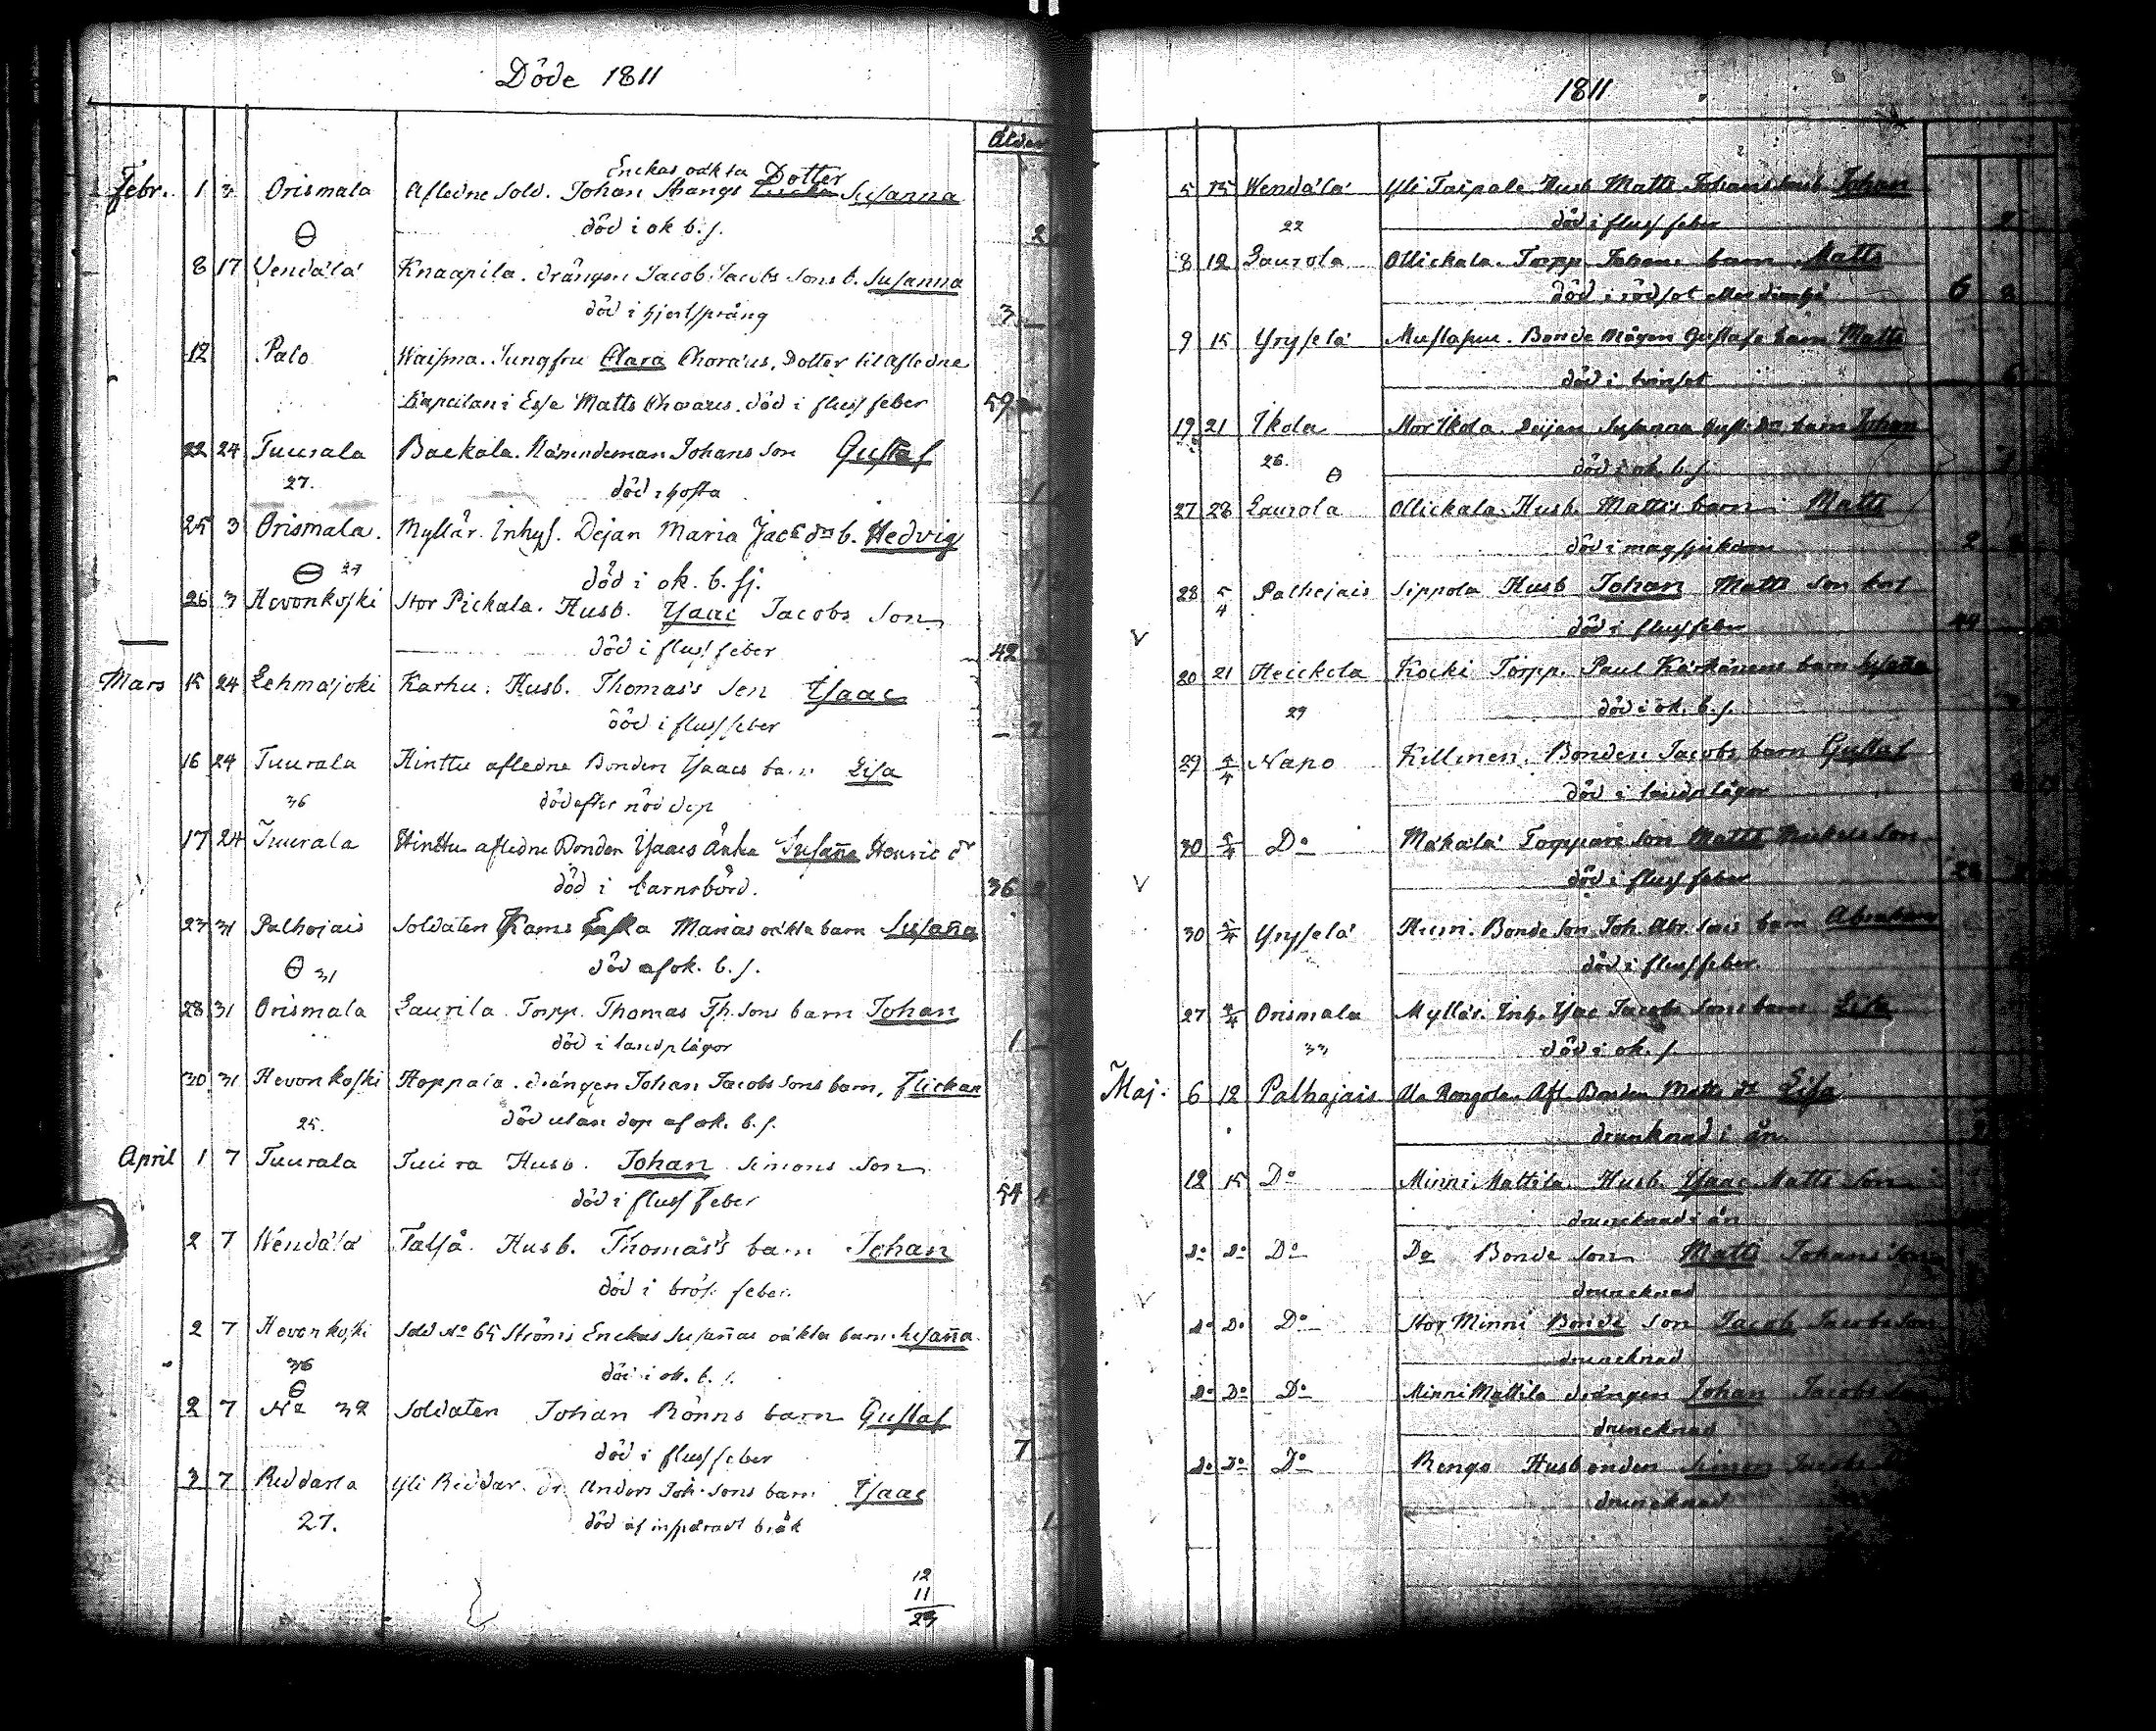 Döde 1811
Ålder
Enckas oäkta Dotter
Febr. 1 3 Orismala Afledne Sold. Johan Strangs Susanna
död i ok b. s. 2
8 17 Vendälä Knaapila. drängen Jacob Jacobs Sons b. Susanna
död i hjertsprång 3
12 Palo Waisma. Jungfru Clara Choraeus, Dotter til afledne
Capellan i Esse Matts Choraeus. död i fluss feber 59
22 24 Tuurala Backala. Nämndeman Johans Son Gustaf
27. död i hosta 1
25 3 Orismala. Myllär. Inhys. Dejan Maria Jac. dr b. Hedvig
27 död i ok. b. sj.
26 3 Hevonkoski Stor Pickala. Husb. Isaac Jacobs Son
död i fluss feber 42
Mars 15 24 Lehmäjoki Karhu. Husb. Thomas's Son Isaac
död i fluss feber 7
16 24 Tuurala Hinttu afledne Bonden Isaacs barn Lisa
36 död efter nöd dop
17 24 Tuurala Hinttu afledne Bonden Isaacs Änka Susanna Henric dr
död i barnsbörd. 36
23 31 Palhojais Soldaten Marias oäkta barn Susanna
31 död af ok. b. s.
28 31 Orismala Laurila Torpp. Thomas Th. Sons barn Johan
död i landplågor 1
30 31 Hevonkoski Hoppala. drängen Johan Jacobs Sons barn, flickan
25. död utan dop af ok. b. s.
April 1 7 Tuurala Tuura Husb. Johan Simons Son
död i fluss Feber 54 4
2 7 Wendälä Talså. Husb. Thomas's barn Johan
död i bröst feber. 5
2 7 Hevonkoski Sold No 65 Ströms Enckas Susannas oäkta barn Susanna
36 död i ok. b. s.
2 7 No 32 Soldaten Johan Rönns barn Gustaf
död i fluss feber 7
3 7 Reddarla Yli Reddar. dr. Anders Joh. Sons barn Isaac
27. död af inspärradt bråk 1
12
11
23
1811
5 15 Wendälä Yli Taipale Husb Matts Johans Sons b Johan
22 död i fluss feber
8 12 Laurola Ollickala Torpp. Johans barn Matts
död i rödsot 6 8
9 15 Yryselä Mustapuu. Bonde Mågen Gustafs barn Matts
död i tvinsot 6
19 21 Ikola Mor Ikola. Dejan Susanna Gust. Dr barn Johan
26. död i ok. b. s. 7
27 28 Laurola Ollickala Husb. Matts's barn Matts
död i magsjukdom 2
28 5/4 Palhojais Sippola Husb Johan Matts Son
död i fluss feber
20 21 Heickola Kocki Torpp. Paul Kärkänens barn Susanna
29 död i ok. b. s.
29 4/4 Napo Killinen. Bonden Jacobs barn Gustaf
död i landplågor
30 5/4 Do Mäkälä Torppare Son Matts Mickels Son
död i fluss feber
30 5/4 Yryselä Bonde Son Joh. Abr. Sons barn Abraham
död i fluss feber.
27 4/4 Orismala Myllär. Inh. Isac Jacobs Sons barn Lisa
33 död i ok. s.
Maj. 6 12 Palhojais Ala Rengola. Afl. Bonden Matts dr Lisa
drunknad i ån.
12 15 Do Minni Mattila. Husb. Isaac Matts Son
druncknad i ån
Do Do Do Do Bonde Son Matts Johans Son
druncknad
Do Do Do Stor Minni Bonde Son Jacob Jacobs Son
druncknad
Do Do Do Minni Mattila drängen Johan Jacobs Son
druncknad
Do Do Do Rengo Husbonden Simon Jacobs
druncknad